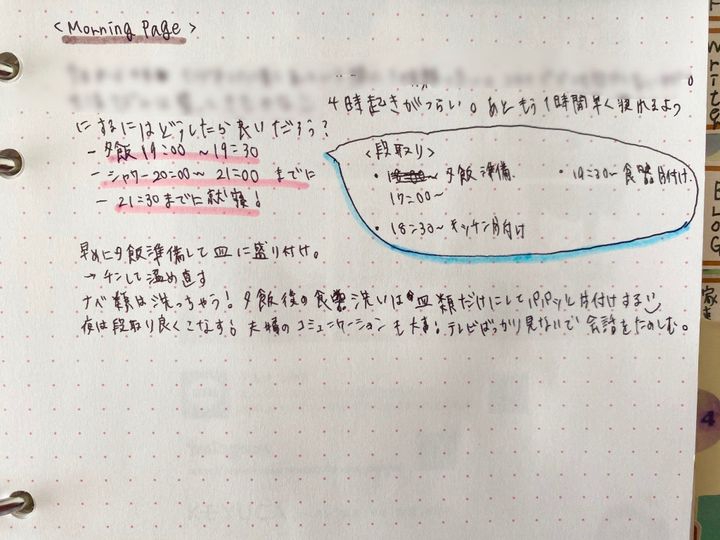 < Morning Page >
4時起きがつらい。あともう1時間早く寝れるよう
にするにはどうしたら良いだろう?
- 夕飯 19:00 ~ 19:30
- シャワー 20:00 ~ 21:00 までに
- 21:30までに就寝!
<段取り>
• 夕飯準備
17:00~
• 18:30~ キッチン片付け
• 19:30~ 食器片付け
早めに夕飯準備して皿に盛り付け。
→チンして温め直す
ナベ類は洗っちゃう! 夕飯後の食器洗いは皿類だけにしてパパッと片付けする
夜は段取り良くこなす! 夫婦のコミュニケーションも大事! テレビばっかり見ないで会話をたのしむ。
Write
BLOG
4